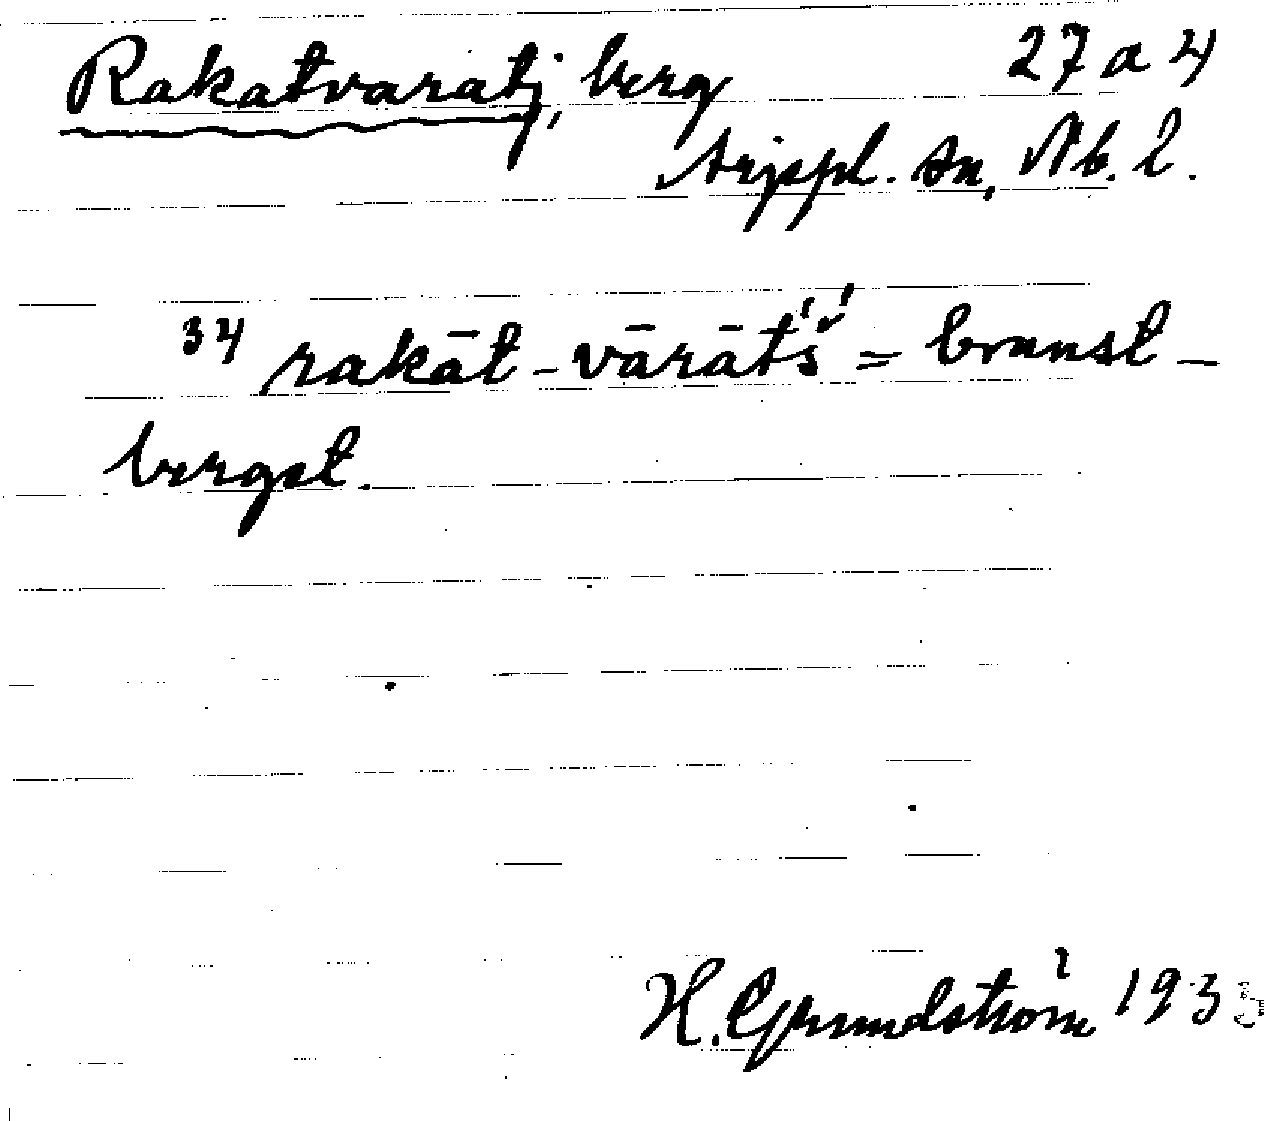 Rakatvaratj, berg 27 a 4
Arjepl. sn, Nb. l.
34 rakāt-vārāt́š́ = brunst-
bergst.
H. Grundström 1935